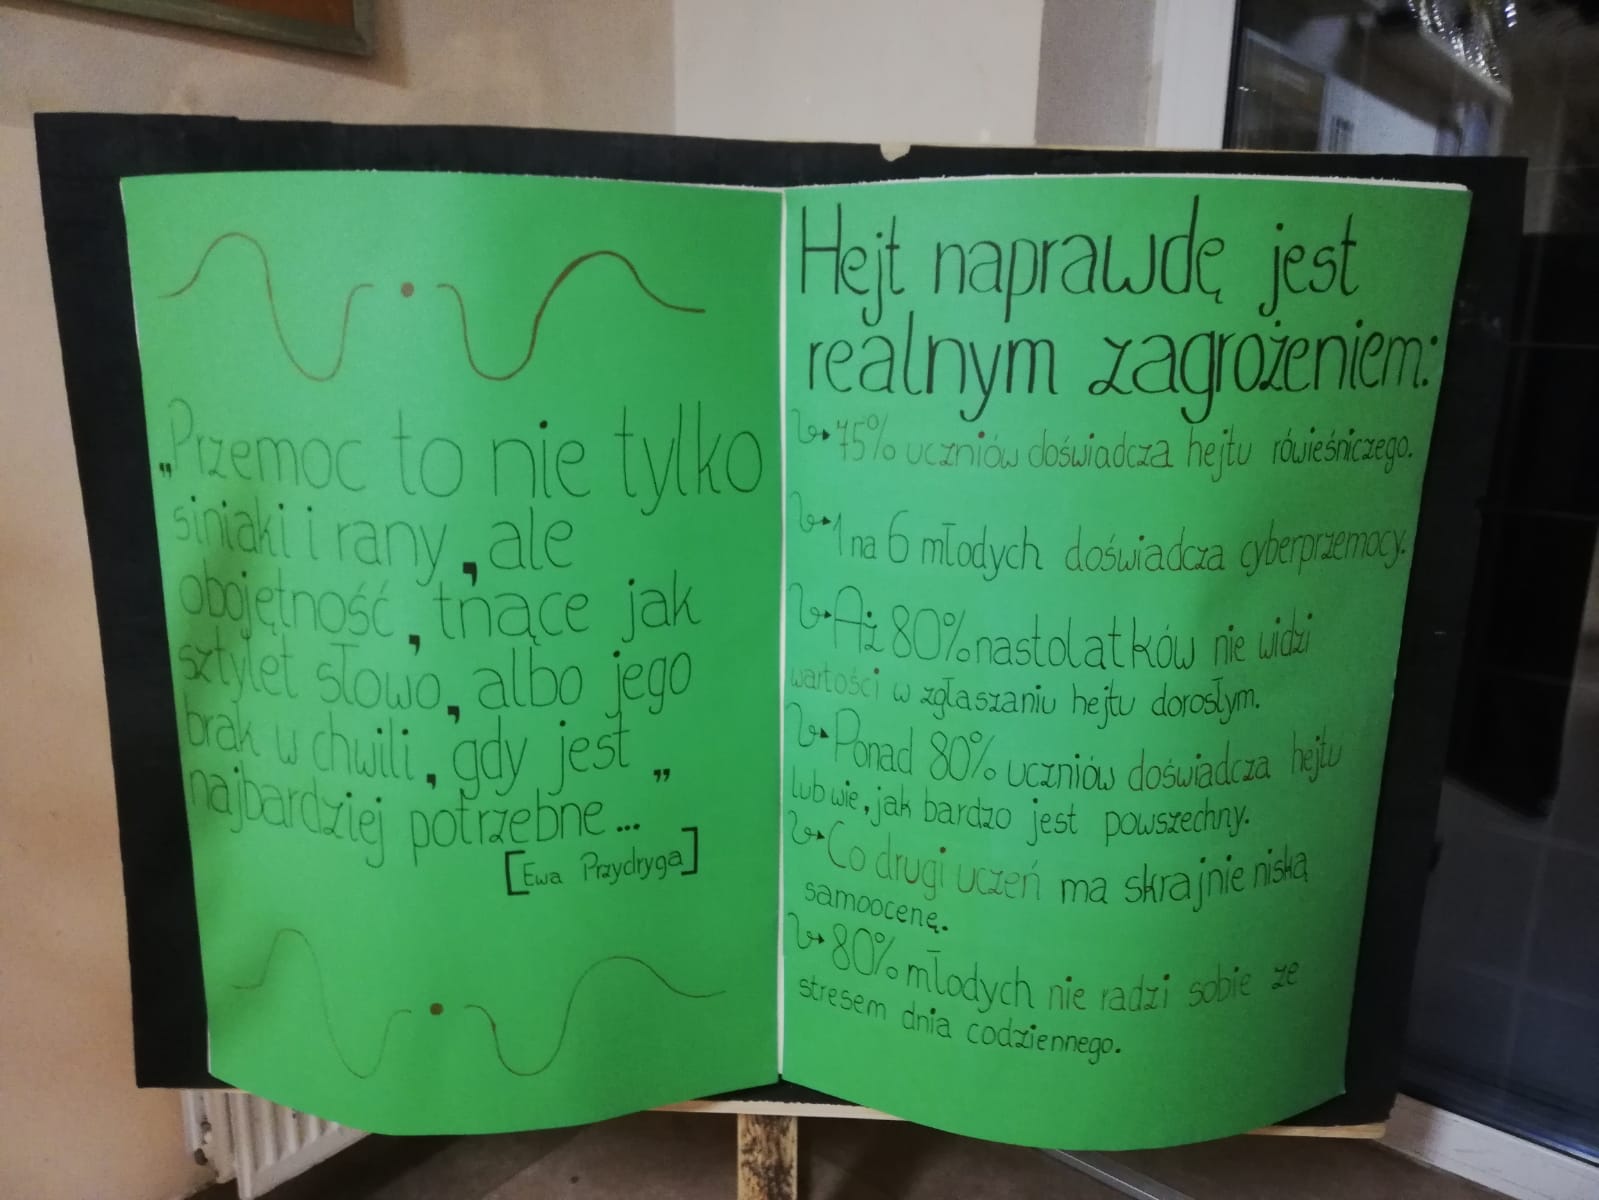 „Przemoc to nie tylko
siniaki i rany, ale
obojętność, tnące jak
sztylet słowo, albo jego
brak w chwili, gdy jest
najbardziej potrzebne...”
[Ewa Przydryga]
Hejt naprawdę jest
realnym zagrożeniem:
75% uczniów doświadcza hejtu rówieśniczego.
1 na 6 młodych doświadcza cyberprzemocy.
Aż 80% nastolatków nie widzi
wartości w zgłaszaniu hejtu dorosłym.
Ponad 80% uczniów doświadcza hejtu
lub wie, jak bardzo jest powszechny.
Co drugi uczeń ma skrajnie niską
samoocenę.
80% młodych nie radzi sobie ze
stresem dnia codziennego.